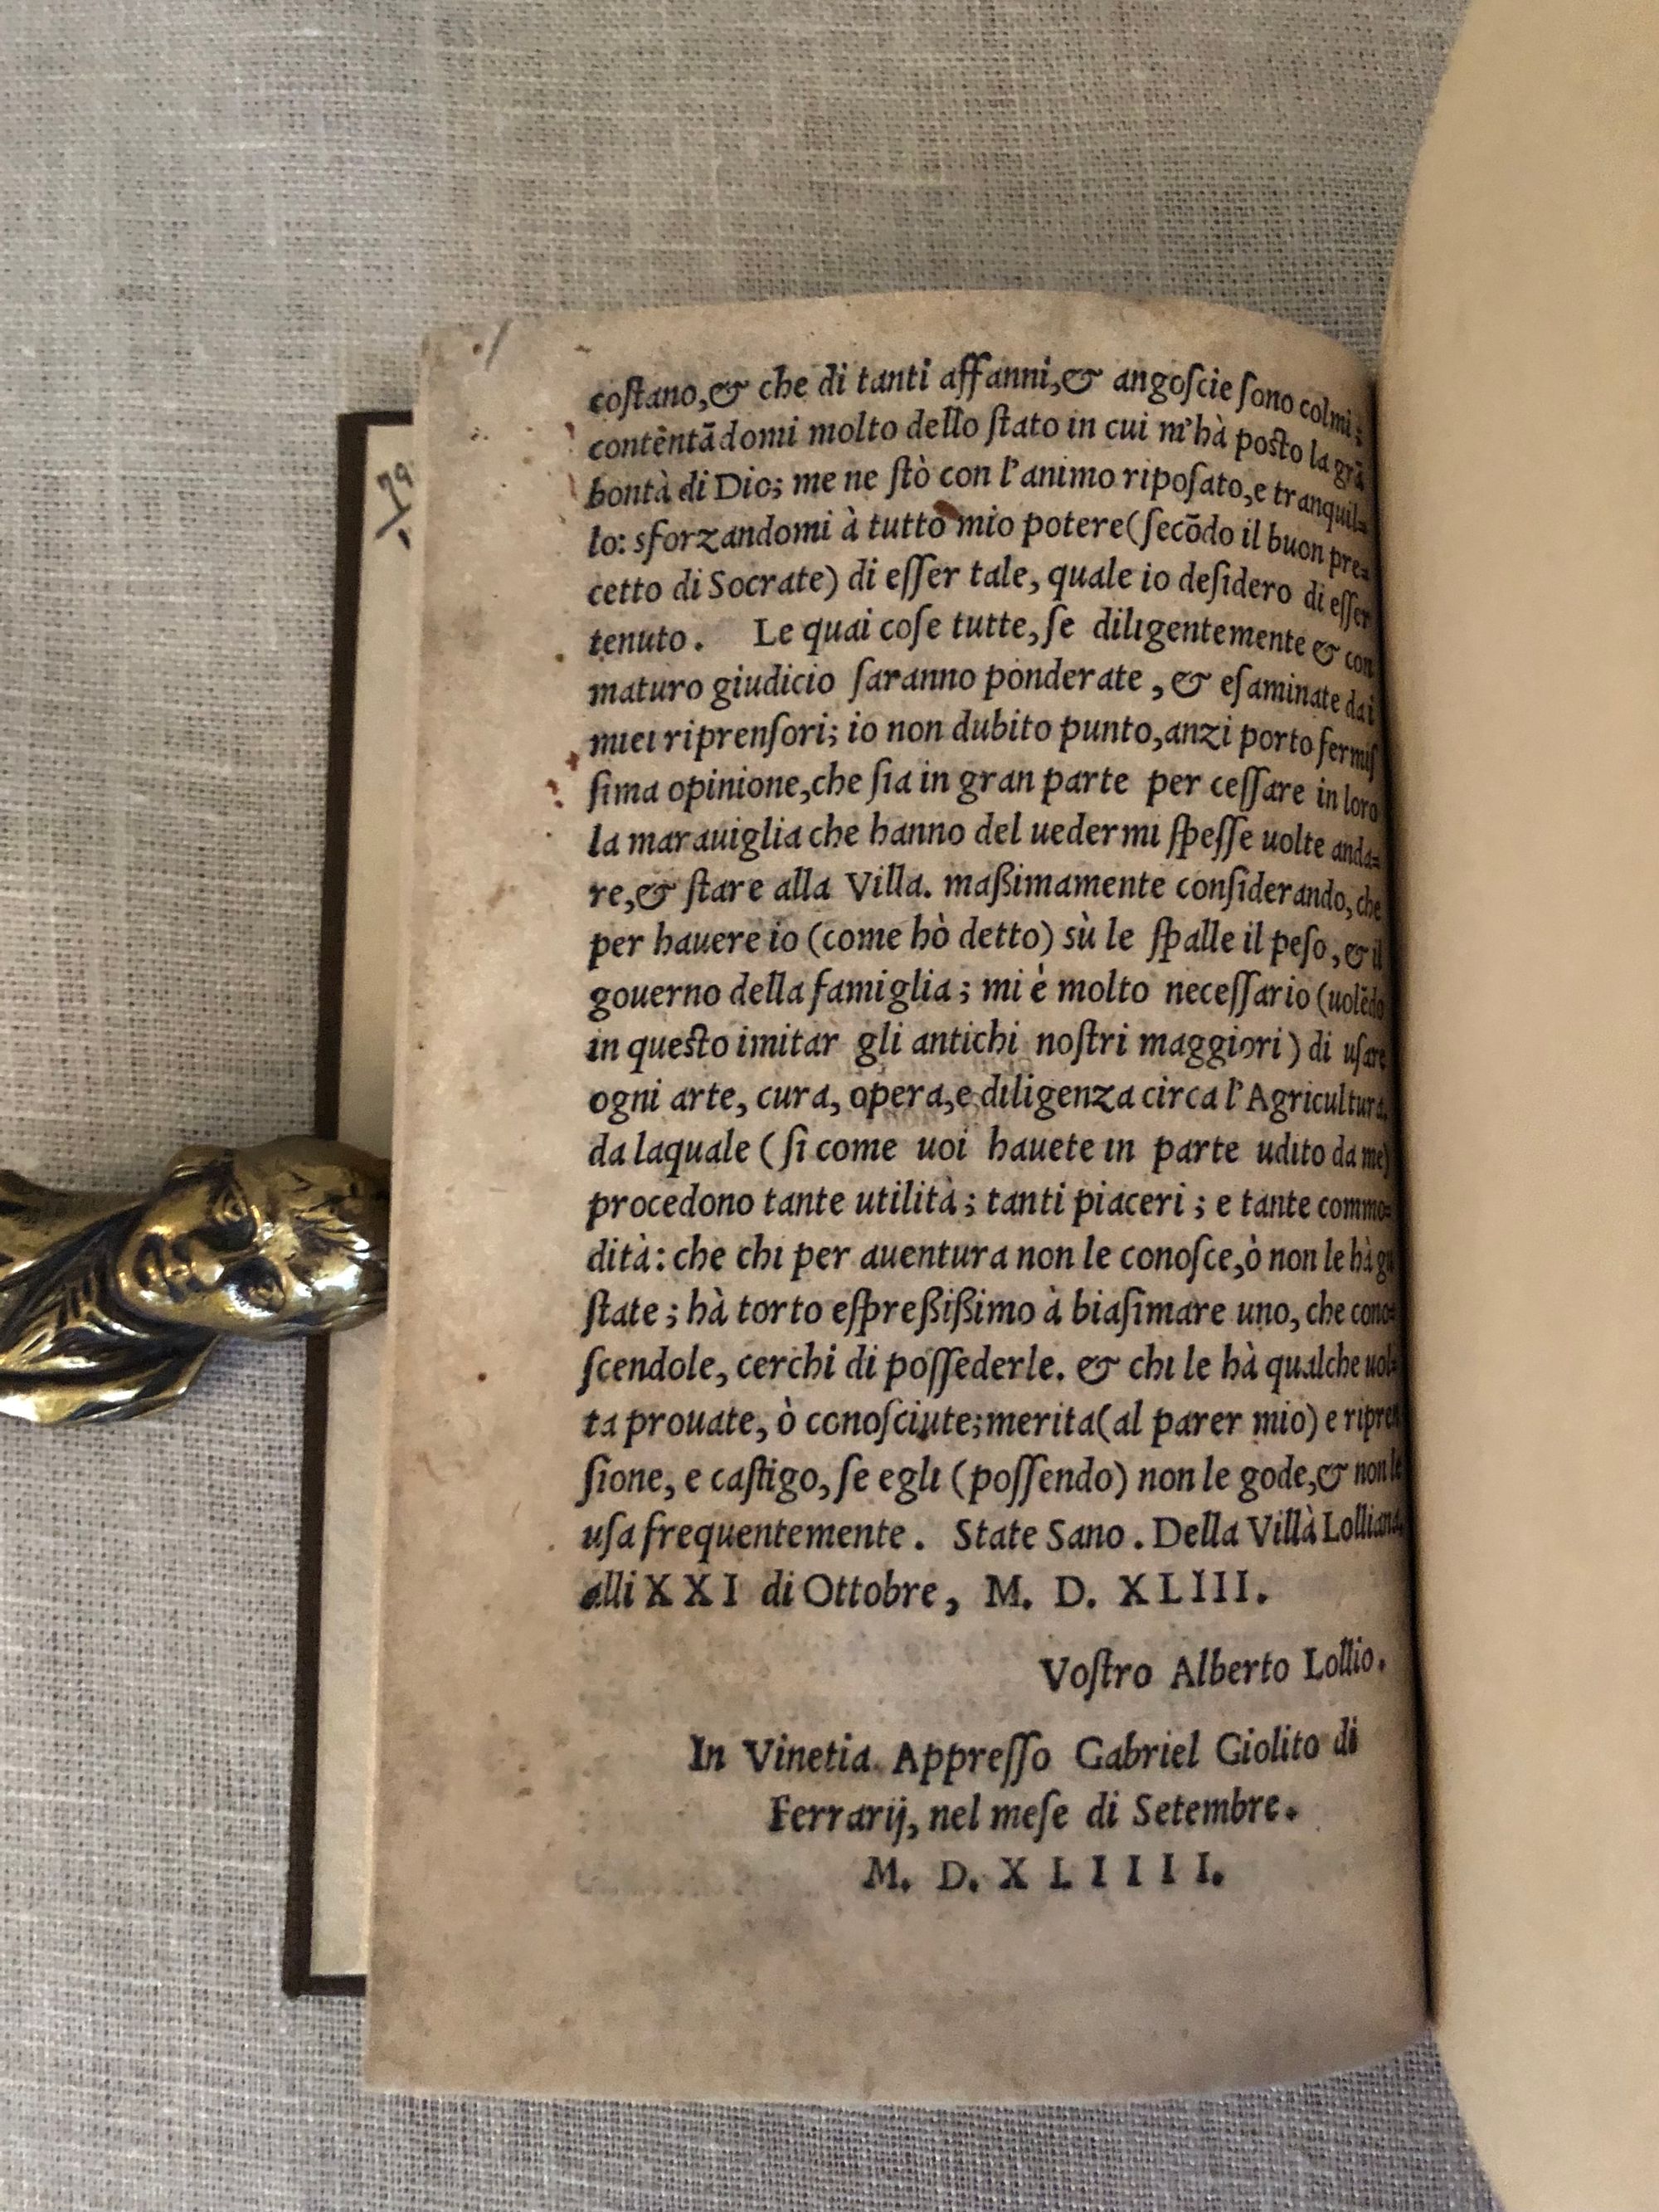 coſtano,& che di tanti affanni,& angoſcie ſono colmi;
contẽntãdomi molto dello ſtato in cui m'hà poſto la grã
bontà di Dio; me ne ſtò con l'animo ripoſato,e tranquil-
lo: sforzandomi à tutto mio potere(ſecõdo il buon pre-
cetto di Socrate) di eſſer tale, quale io deſidero di eſſer
tenuto. Le quai coſe tutte,ſe diligentemente & con
maturo giudicio ſaranno ponderate, & eſaminate dai
miei riprenſori; io non dubito punto,anzi porto fermiſ
ſima opinione,che ſia in gran parte per ceſſare in loro
la marauiglia che hanno del uedermi ſpeſſe uolte anda-
re,& ſtare alla Villa. maßimamente conſiderando, che
per hauere io (come hò detto) sù le ſpalle il peſo, & il
gouerno della famiglia; mi è molto neceſſario (uolẽdo
in queſto imitar gli antichi noſtri maggiori) di uſare
ogni arte, cura, opera,e diligenza circa l'Agricultura.
da laquale (ſi come uoi hauete in parte udito da me)
procedono tante utilità; tanti piaceri; e tante commo-
dità: che chi per auentura non le conoſce,ò non le hà gu
ſtate; hà torto eſpreßißimo à biaſimare uno, che cono-
ſcendole, cerchi di poſſederle. & chi le hà qualche uol-
ta prouate, ò conoſciute;merita(al parer mio) e ripren
ſione, e caſtigo, ſe egli (poſſendo) non le gode,& non le
uſa frequentemente. State Sano. Della Villà Lolliana,
alli XXI di Ottobre, M. D. XLIII.
Voſtro Alberto Lollio.
In Vinetia Appreſſo Gabriel Giolito di
Ferrarij, nel meſe di Setembre.
M. D. XLIIII.